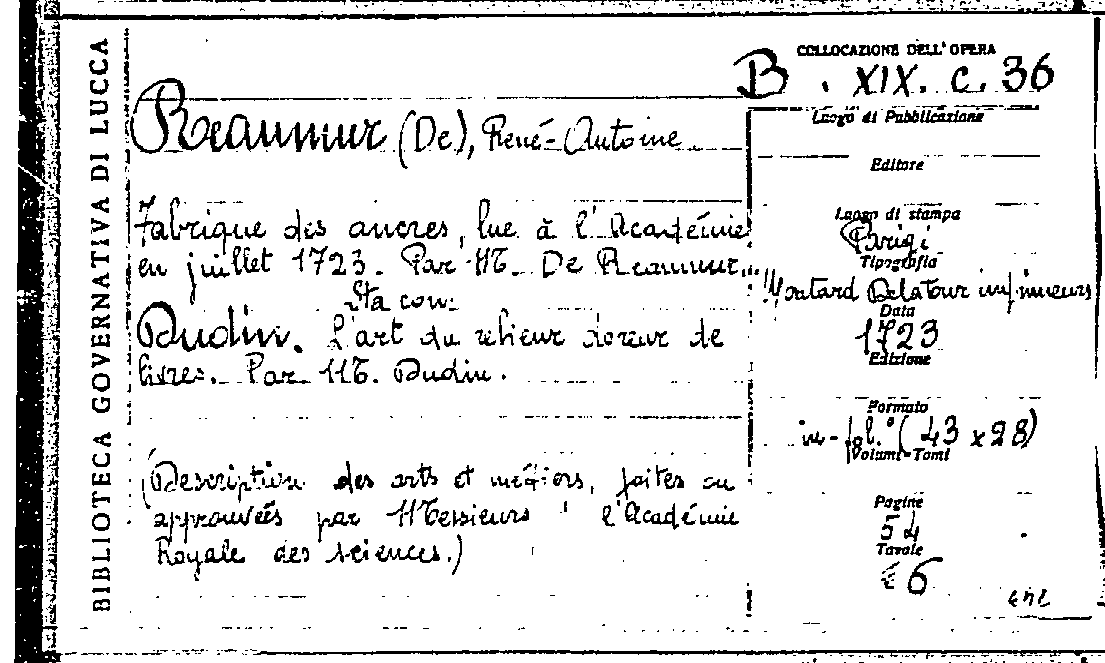 BIBLIOTECA GOVERNATIVA DI LUCCA
COLLOCAZIONE DELL'OPERA
B. XIX. c. 36
Reaumur (De), René-Antoine.
Fabrique des ancres, lue à l'Académie
en juillet 1723. Par M. De Reaumur.
Sta con:
Dudin. L'art du relieur doreur de
livres. Par M. Dudin.
(Description des arts et métiers, faites ou
approuvées par Messieurs l'Académie
Royale des sciences.)
Luogo di Pubblicazione
Editore
Luogo di stampa
Parigi
Tipografia
Moutard Delatour
Data
1723
Edizione
Formato
in-fol.° (43 x 28)
Volumi-Tomi
Pagine
54
Tavole
6